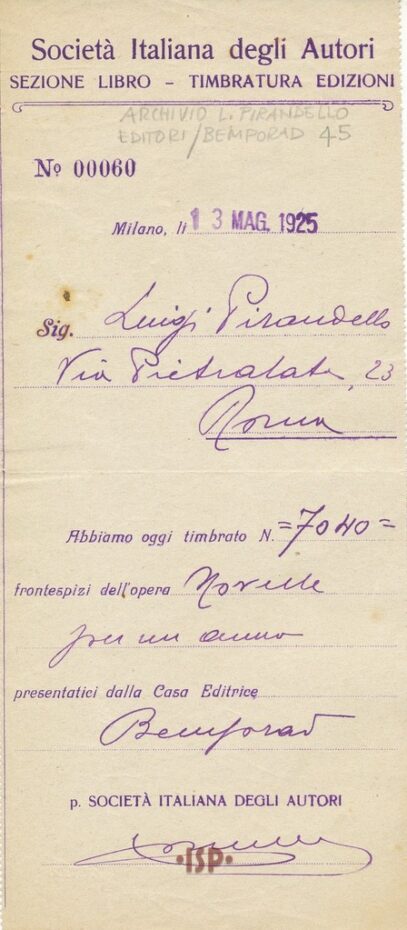 Società Italiana degli Autori
SEZIONE LIBRO – TIMBRATURA EDIZIONI
ARCHIVIO L. PIRANDELLO
EDITORI/BEMPORAD 45
No 00060
Milano, li 13 MAG. 1925
Sig. Luigi Pirandello
Via Pietralata, 23
Roma
Abbiamo oggi timbrato N. =7040=
frontespizi dell'opera Novelle
per un anno
presentatici dalla Casa Editrice
Bemporad
p. SOCIETÀ ITALIANA DEGLI AUTORI
·ISP·